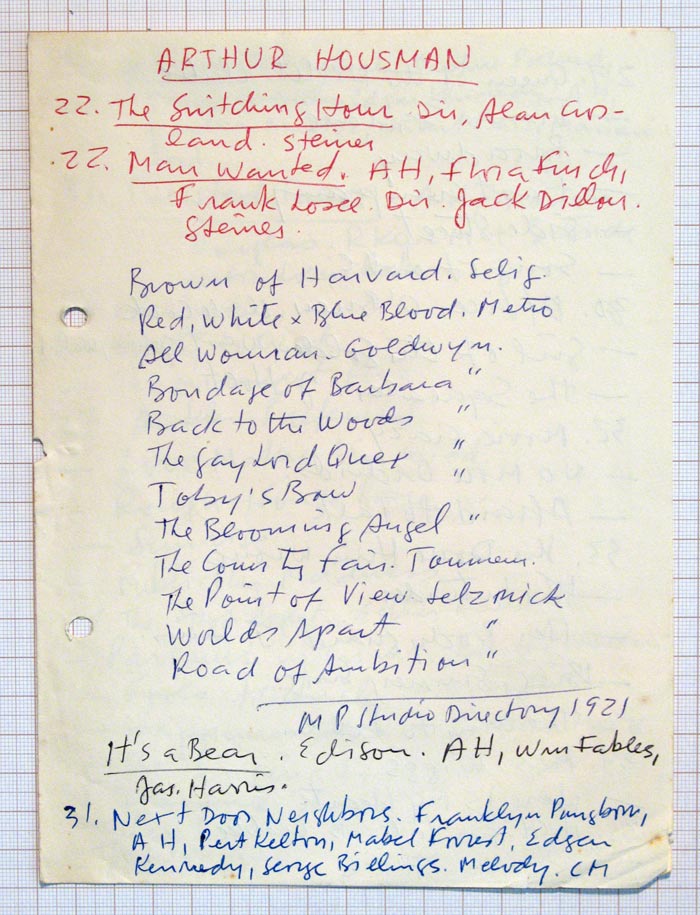 ARTHUR HOUSMAN
22. The Snitching Hour. Dir. Alan Cros-
land. Steiner
22. Man Wanted. AH, Flora Finch,
Frank Losee. Dir. Jack Dillon.
Steiner.
Brown of Harvard. Selig.
Red, White & Blue Blood. Metro
All Woman. Goldwyn.
Bondage of Barbara "
Back to the Woods "
The Gay Lord Quex "
Toby's Bow "
The Blooming Angel "
The County Fair. Tourneur.
The Point of View Selznick
Worlds Apart "
Road of Ambition "
MP Studio Directory 1921
It's a Bear. Edison. AH, Wm Fables,
Jas. Harris.
31. Next Door Neighbors. Franklyn Pangborn,
AH, Pert Kelton, Mabel Forrest, Edgar
Kennedy, George Billings. Melody. CM